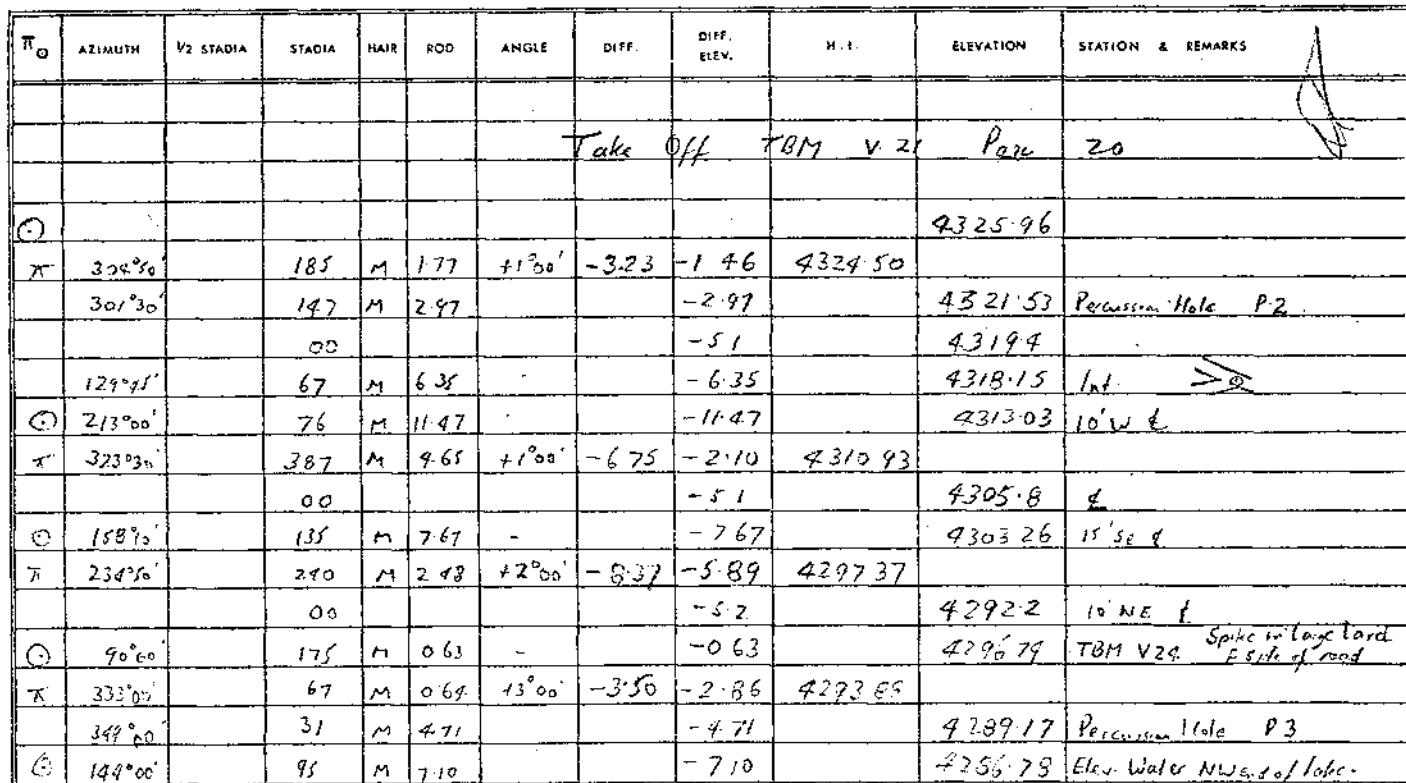 π⊙ AZIMUTH 1/2 STADIA STADIA HAIR ROD ANGLE DIFF. DIFF. ELEV. H.I. ELEVATION STATION & REMARKS
Take Off TBM V 21 Page 20
⊙ 4325.96
π 304°50' 185 M 1.77 +1°00' -3.23 -1 46 4324.50
301°30' 147 M 2.97 -2.97 4321.53 Percussion Hole P.2
00 -5 1 4319 4
129°45' 67 M 6 35 -6.35 4318.15 Int.
⊙ 213°00' 76 M 11.47 -11.47 4313.03 10'W ₵
π 323°30' 387 M 4.65 +1°00' -6 75 -2.10 4310 93
00 -5 1 4305.8 ₵
⊙ 135 M 7.67 - -7 67 4303 26 15'SE ₵
π 234°50' 240 M 2 48 +2°00' -8.37 -5.89 4297 37
00 -5.2 4292.2 10'NE ₵
⊙ 90°00' 175 M 0 63 - -0 63 4296 74 TBM V24 Spike in large
side of road
π 333°00' 67 M 0.64 +3°00' -3.50 -2.86 4293 88
349°00' 31 M 4.71 -4.71 4289.17 Percussion Hole P 3
⊙ 144°00' 95 M 7.10 -7 10 4286.78 Elev. Water NW end of lake.